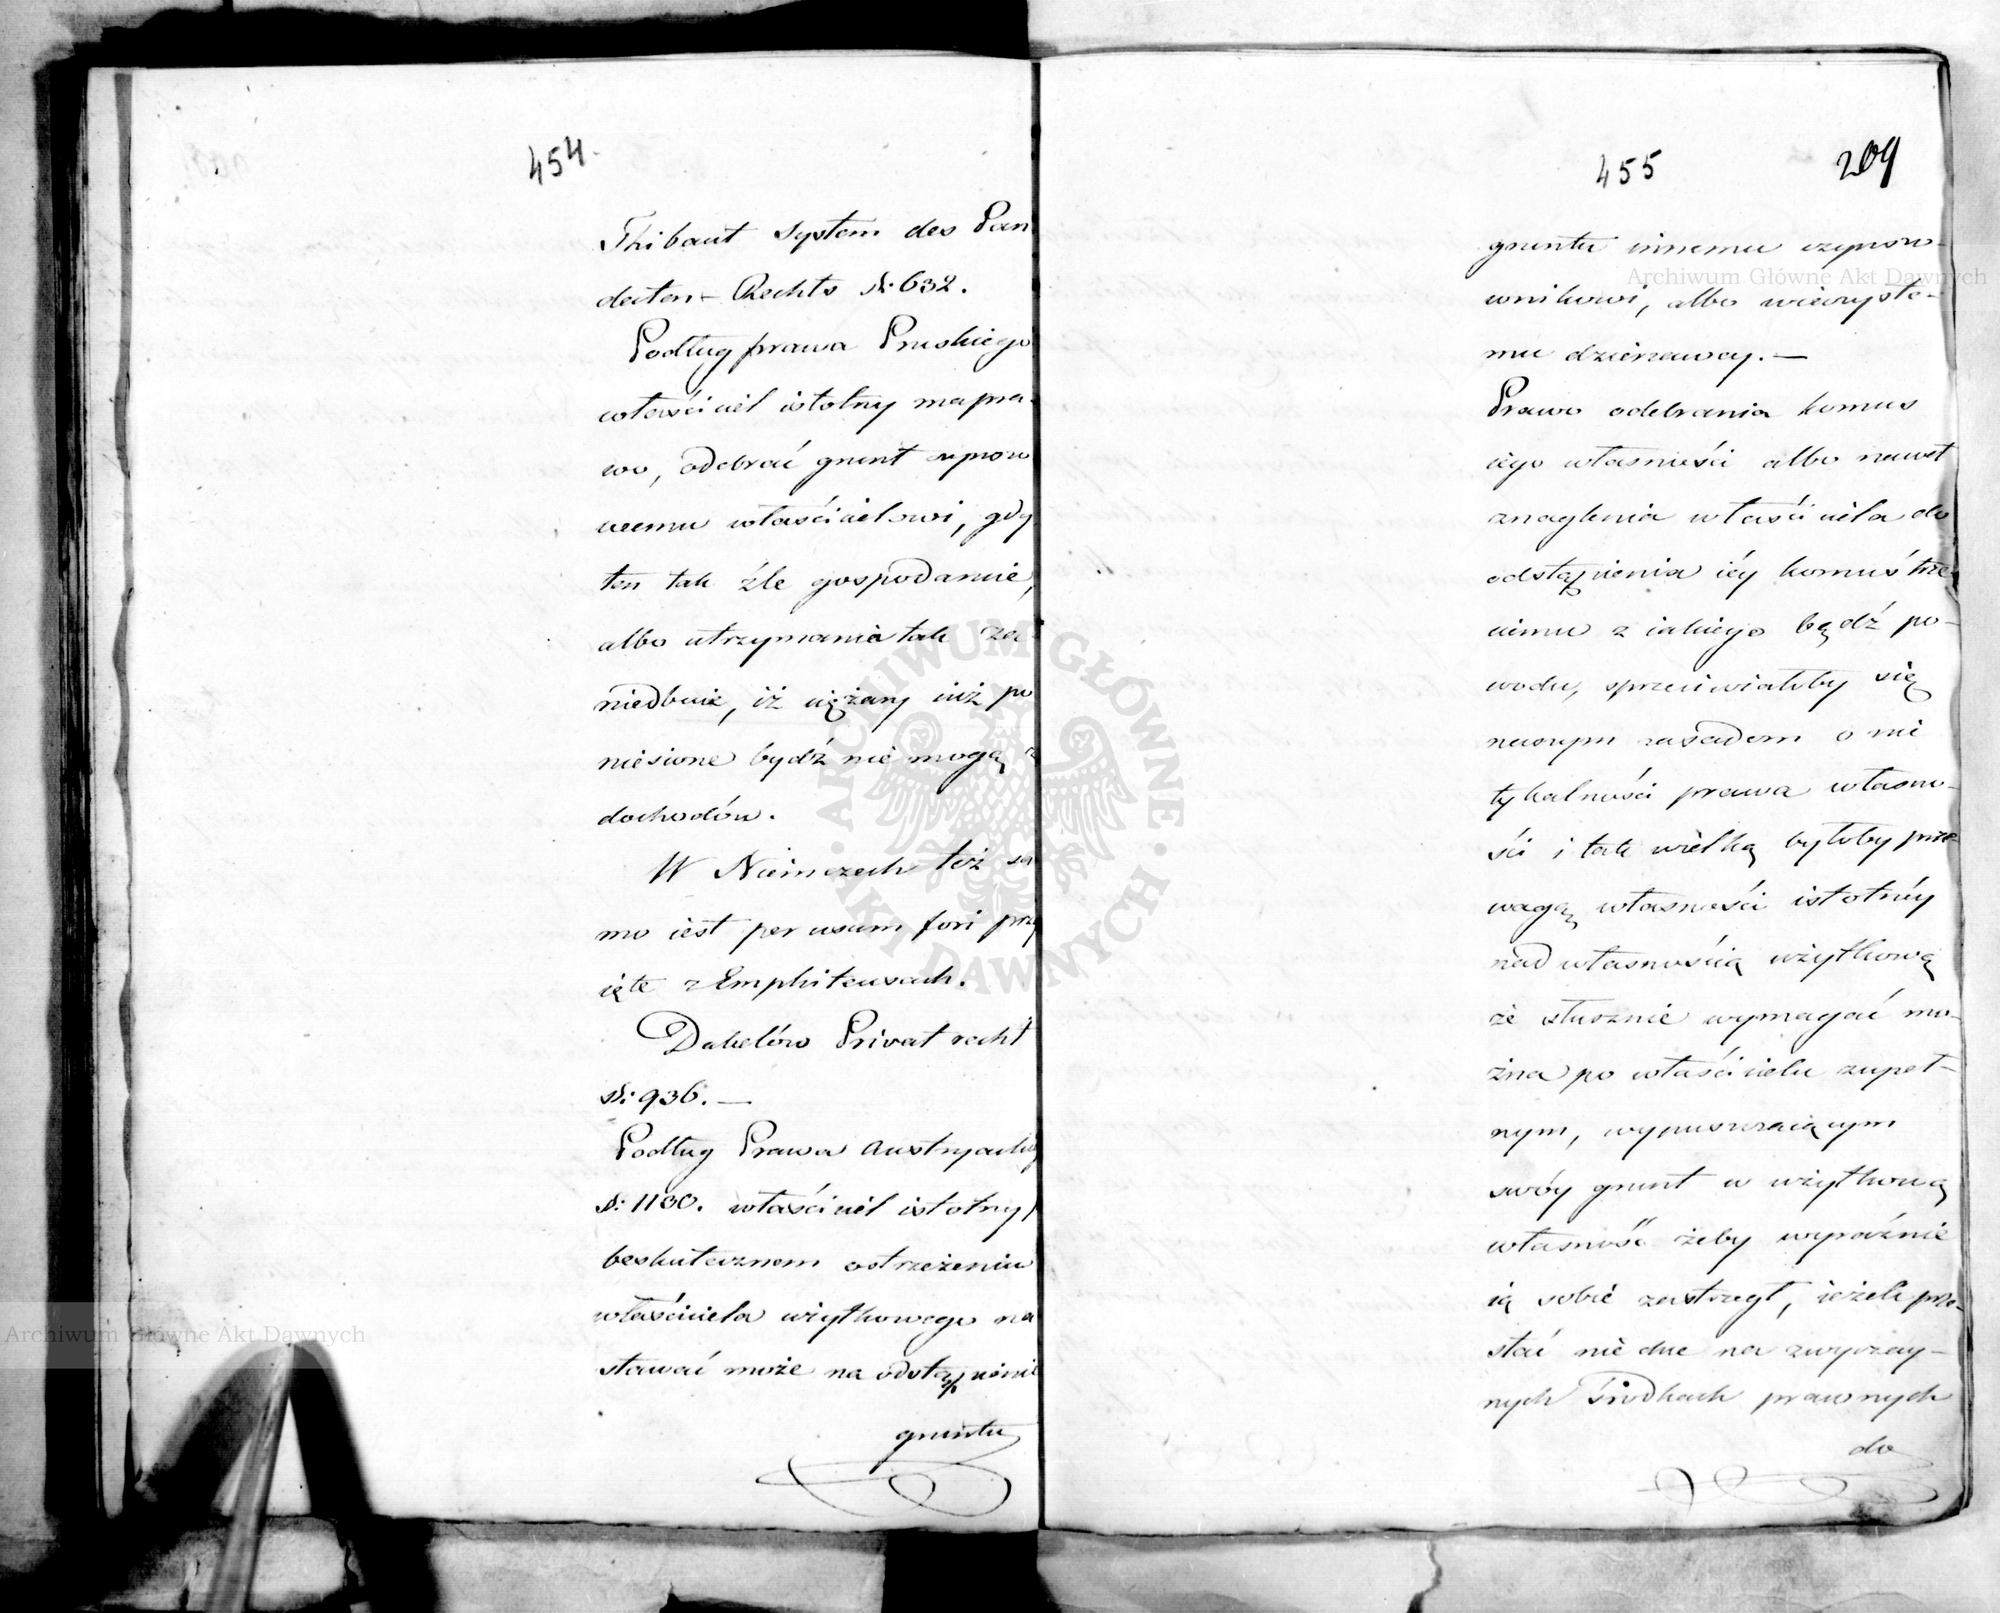 454.
Thibaut System des Pan
decten - Rechts §: 632.
Podług prawa Pruskiego
właściciel istotny ma pra-
wo, odebrać grunt
wemu właścicielowi, gdy
ten tak źle gospodaruie,
albo utrzymanie tak za-
niedbuie, iż ciężary iuż po
niesione bydź nie mogą z
dochodów.
W Niemczech też sa
mo iest per usum fori przy
ięte z Emphiteusach.
Dabelów Privat recht
§: 936. —
Podług Prawa Austryackie
§: 1100. właściciel istotny
beskutecznem ostrzeżeniu
właściciela użytkowego na
stawać może na odstąpienie
gruntu
455
209
gruntu innemu czynszo-
wnikowi, albo wieczyste-
mu dzierzawcy. —
Prawo odebrania komus
iego własności albo nawet
znaglenia właściciela do
odstąpienia iéy komuś trze-
ciemu z iakiego bądź po-
wodu, sprzeciwiałoby się
naszym zasadom o nie
tykalności prawa własno-
ści i tak wielką byłoby prze-
wagą własności istotnéy
nad własnością użytkową
że słusznie wymagać mo-
żna po właścicielu zupeł-
nym, wypuszczaiącym
swóy grunt w użytkową
własność żeby wyraźnie
ią sobie zastrzegł, ieżeli prze-
stać nie chce na zwyczay-
nych środkach prawnych
do
Archiwum Główne Akt Dawnych
Archiwum Główne Akt Dawnych
ARCHIWUM GŁÓWNE · AKT DAWNYCH ·